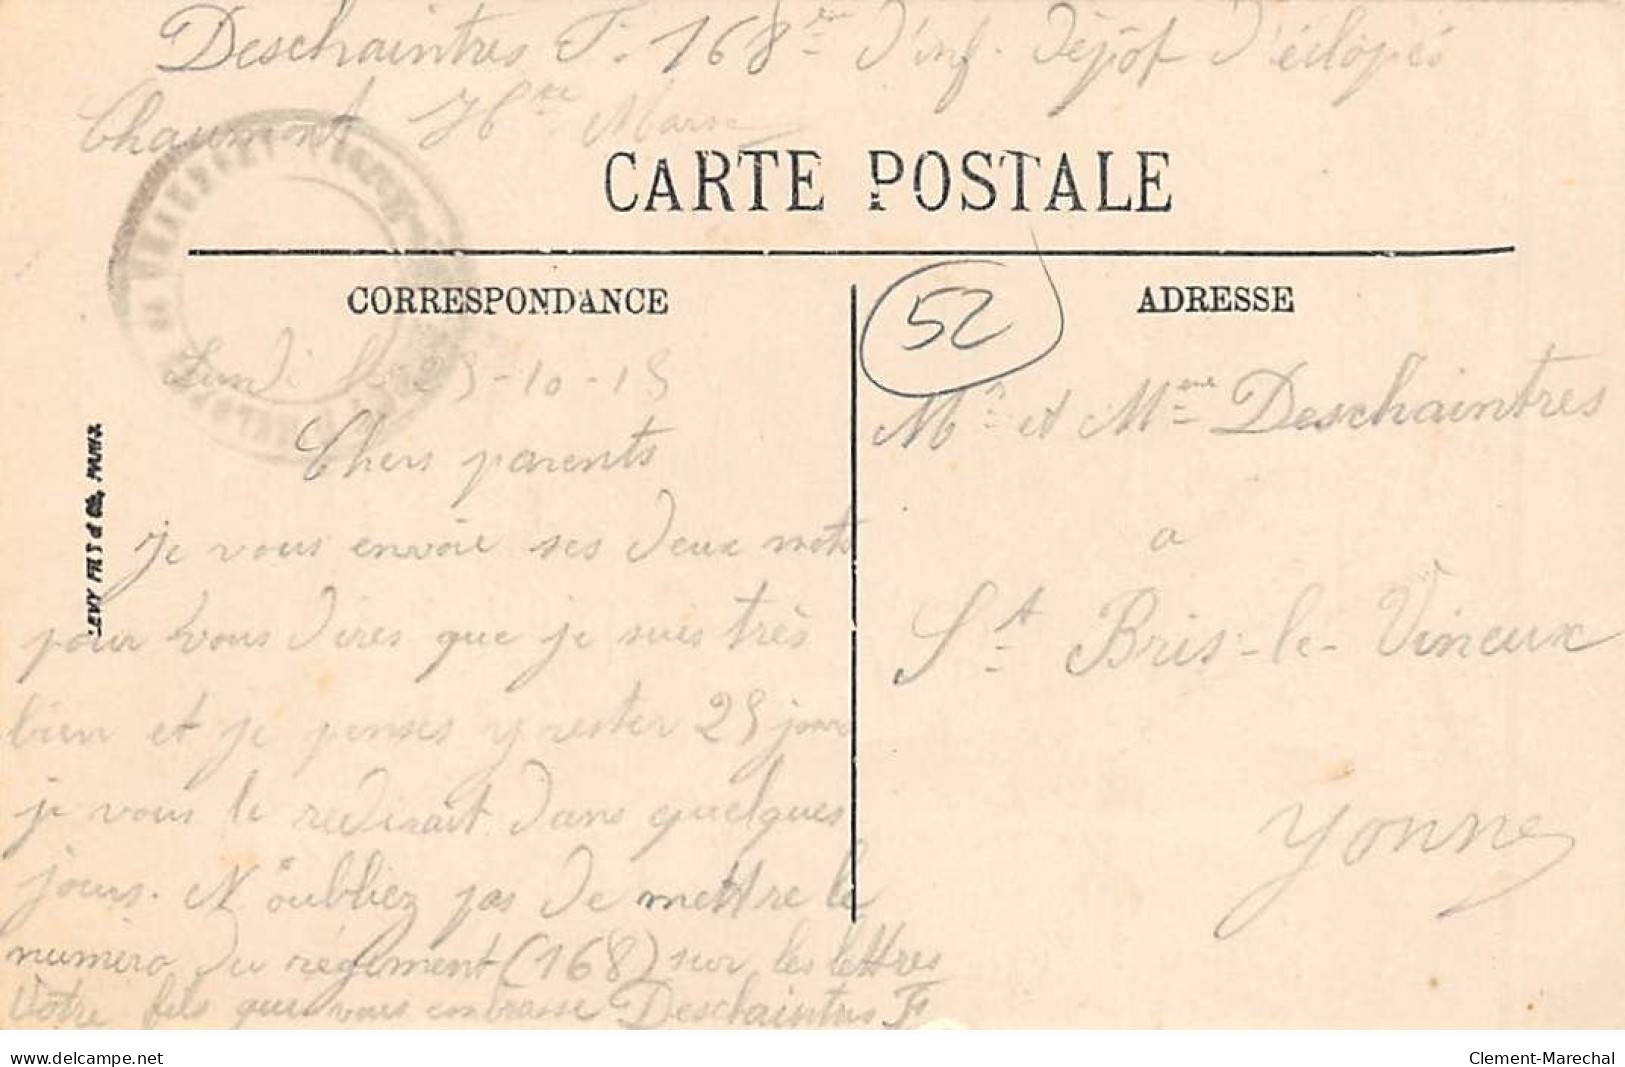 Deschaintres F. 168ème d'inf. Dépôt d'éclopés
Chaumont Hte Marne
CARTE POSTALE
CORRESPONDANCE
52
ADRESSE
Lundi le 25-10-15
Chers parents
Je vous envoie ses deux mots
pour vous dires que je suis très
bien et je penses y rester 25 jours
je vous le redirait dans quelques
jours. N'oubliez pas de mettre le
numéro du régiment (168) sur les lettres
Votre fils qui vous embrasse Deschaintres F
Mr et Mme Deschaintres
a
St Bris-le-Vineux
Yonne
LEVY FILS et Cie, PARIS
www.delcampe.net
Clement-Marechal